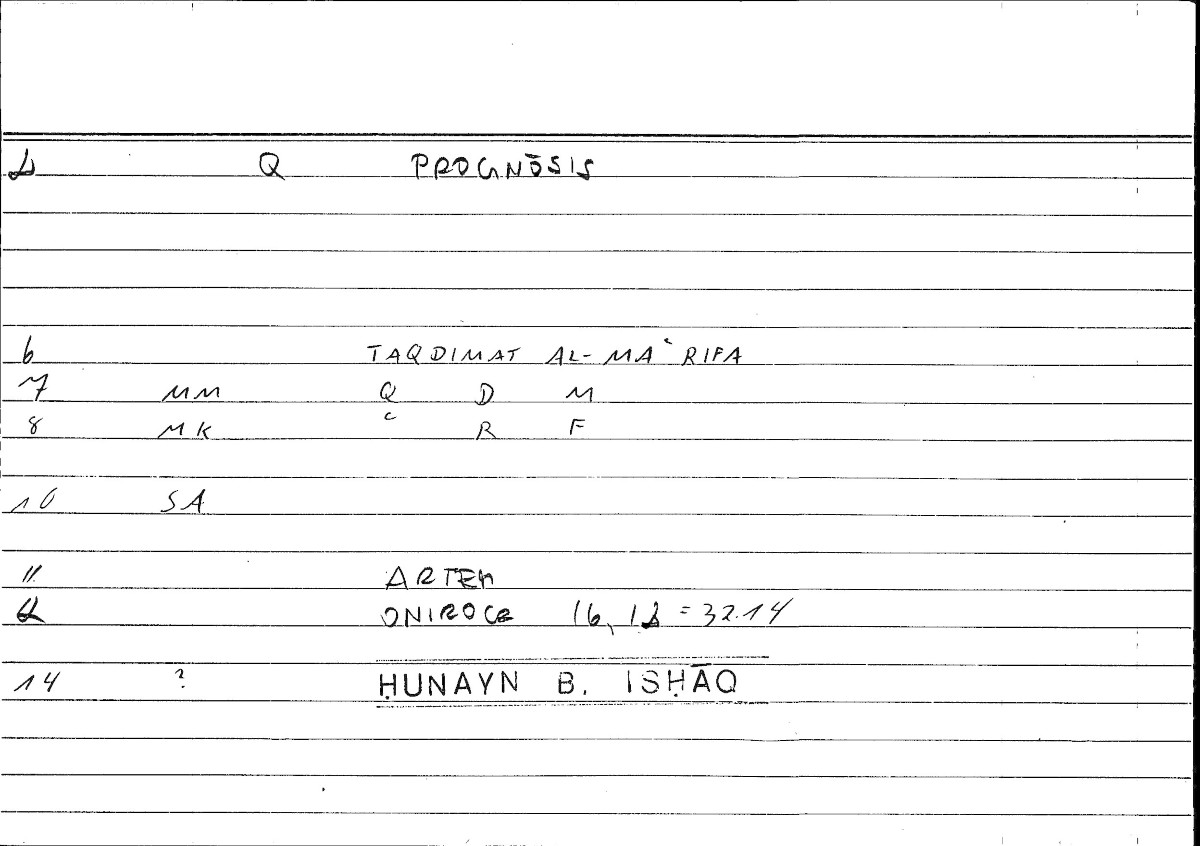 Q PROGNŌSIS
6 TAQDIMAT AL-MAʿRIFA
7 MM Q D M
8 MK ʿ R F
10 SA
11 ARTEM
ONIROCR 16,12 = 32.14
14 ? ḤUNAYN B. ISḤĀQ